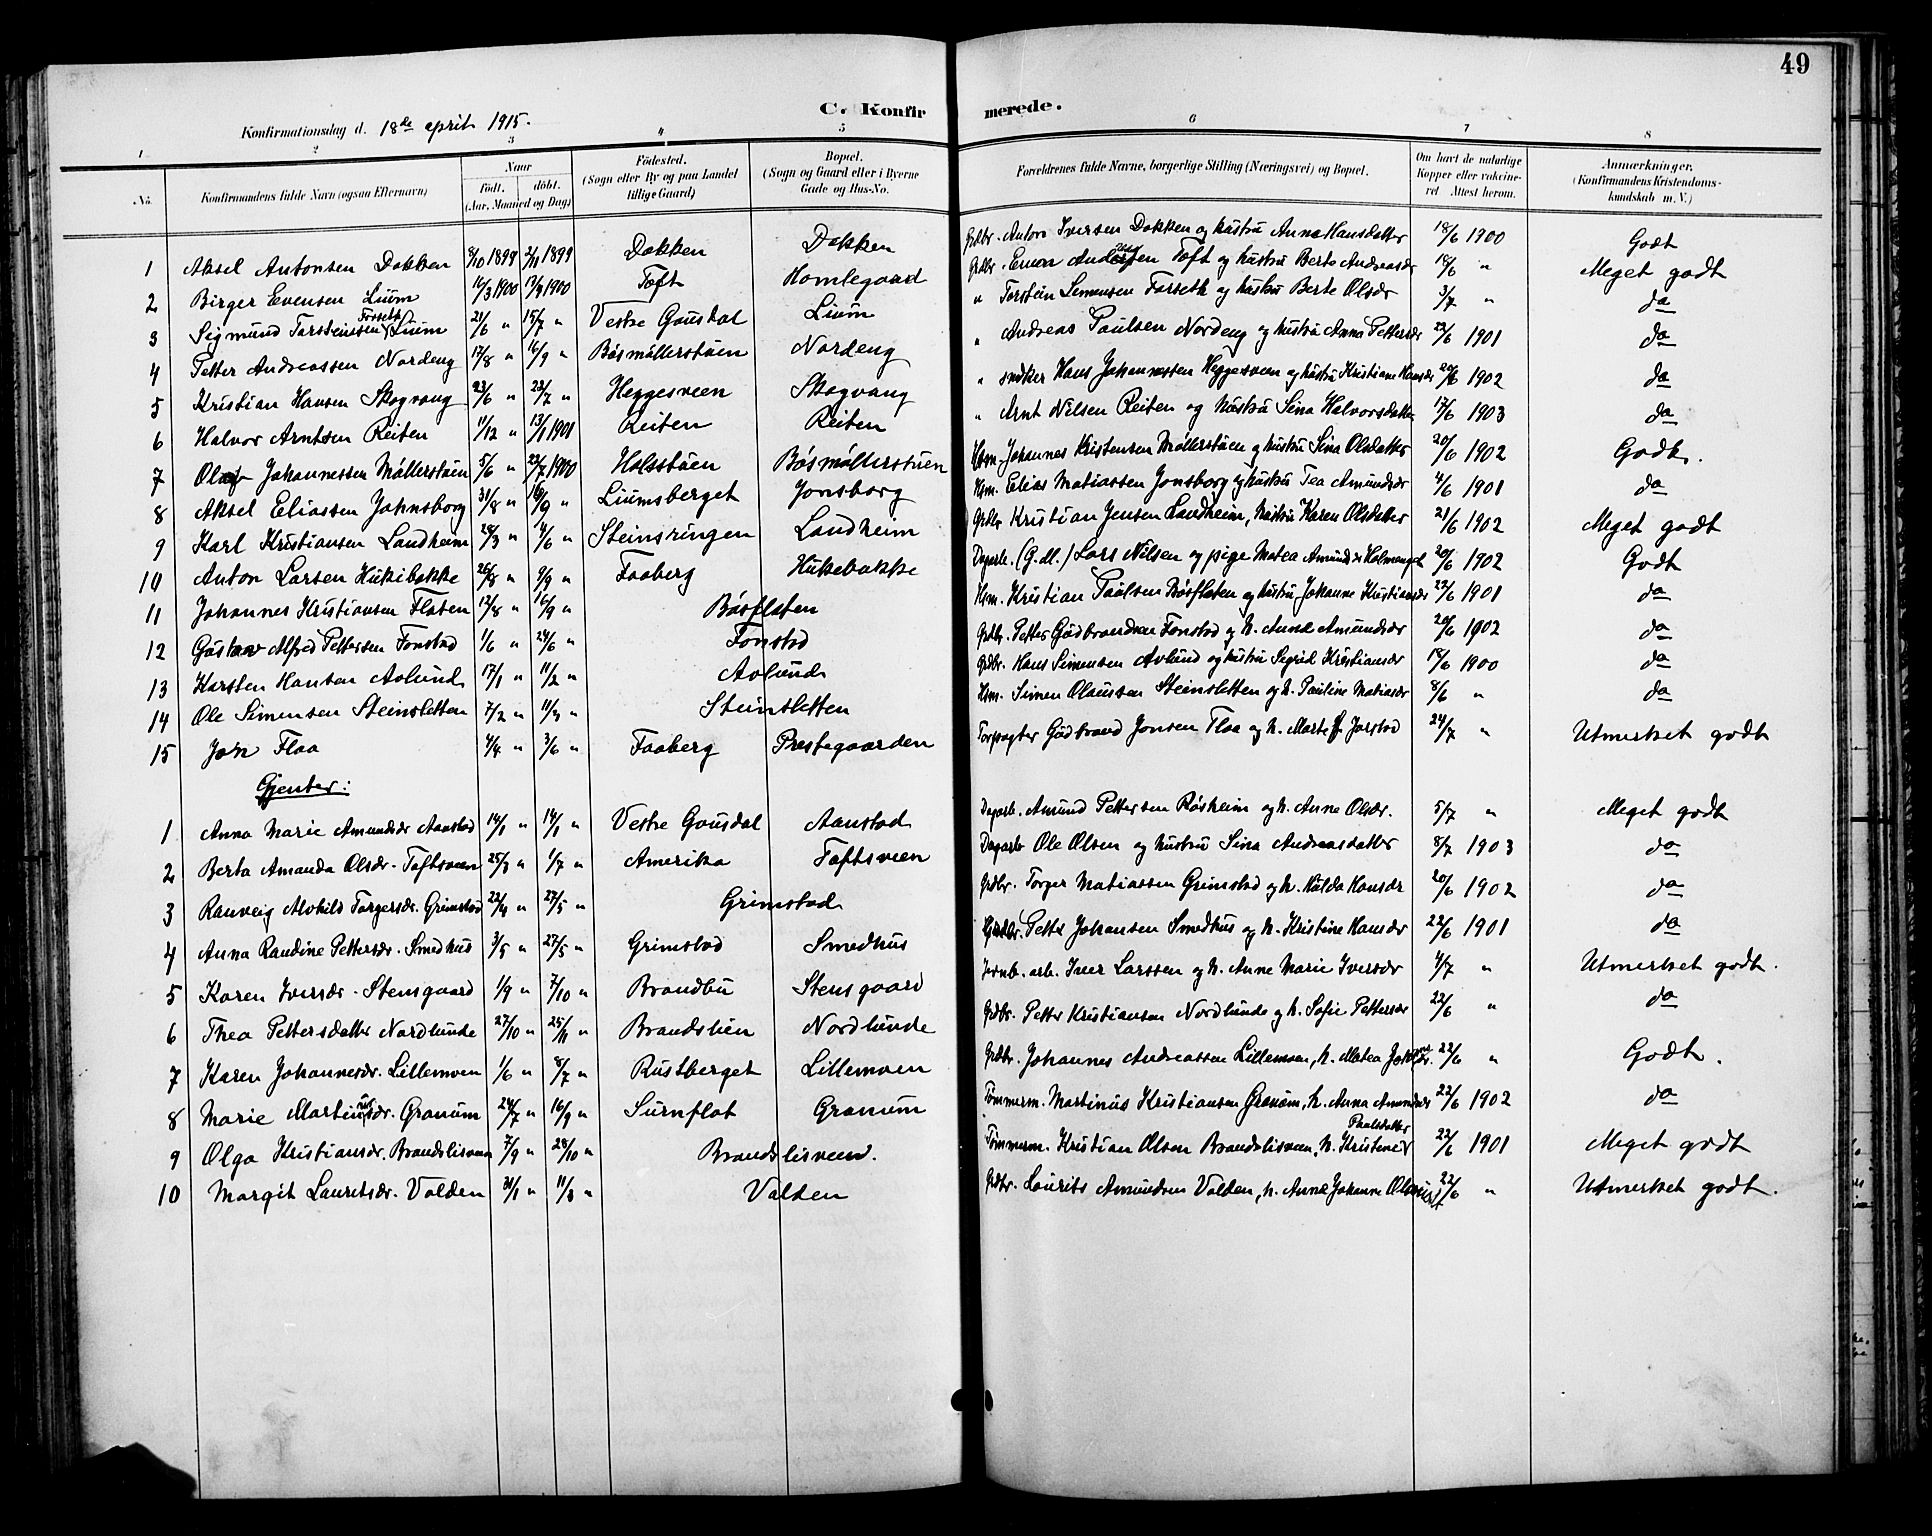 49
C. Konfirmerede.
Konfirmationsdag d. 18de april 1915.
1 2 3 4 5 6 7 8
No. Konfirmandens fulde Navn (ogsaa Efternavn) Naar født. døbt. (Aar, Maaned og Dag) Fødested. (Sogn eller By og paa Landet tillige Gaard) Bopæl. (Sogn og Gaard eller i Byerne Gade og Hus-No. Forældrenes fulde Navne, borgerlige Stilling (Næringsvei) og Bopæl. Om havt de naturlige Kopper eller vakcineret Attest herom. Anmærkninger. (Konfirmandens Kristendomskundskab m. V.)
1 Aksel Antonsen Dokken 8/10 1899 2/11 1899 Dokken Dokken Grdbr. Anton Iversen Dokken og hustru Anne Hansdatter 18/6 1900 Godt
2 Birger Evensen Lium 16/3 1900 17/3 1900 Toft Homlegaard Grdbr. Even Andersen Toft og hustru Berte Andreasdr 18/6 " Meget godt
3 Sigmund Torsteinssen Forseth Lium 21/6 " 15/7 " Vestre Gausdal Lium " Torstein Simensen Forseth og hustru Berte Olsdr 3/7 " do
4 Petter Andreassen Nordeng 17/8 " 16/9 " Bøsmøllerstuen Nordeng " Andreas Paulsen Nordeng og hustru Anna Pettersdr 22/6 1901 do
5 Kristian Hansen Skogvang 23/6 " 22/7 " Heggesveen Skogvang " sneker Hans Johannessen Heggesveen og hustru Kristiane Hansdr 20/6 1902 do
6 Halvor Arntsen Reiten 11/12 " 13/1 1901 Reiten Reiten " Arnt Nilsen Reiten og hustru Sina Halvorsdatter 17/6 1903 do
7 Olaf Johannessen Møllerstuen 5/6 " 22/7 1900 Holsstuen Bøsmøllerstuen Hsm. Johannes Kristensen Møllerstuen og hustru Sina Olsdatter 20/6 1902 Godt.
8 Aksel Eliassen Johnsborg 31/8 " 16/9 " Liumsberget Jonsborg Hsm. Elias Matiassen Jonsborg og hustru Tea Amundsdr 4/6 1901 do
9 Karl Kristiansen Landheim 28/3 " 4/6 " Steinsringen Landheim Grdbr Kristian Jensen Landheim, hustru Karen Olsdatter 21/6 1902 Meget godt
10 Anton Larsen Hukebakke 26/8 " 9/9 " Faaberg Hukebakke Dagarb. (G.dl.) Lars Nilsen og pige Matea Amundsdr Holmenget 20/6 1902 Godt
11 Johannes Kristiansen Flaten 17/8 " 16/9 " Bøsflaten Hsm. Kristian Paulsen Bøsflaten og hustru Johanne Kristiansdr 22/6 1901 do
12 Gustav Alfred Pettersen Fonstad 1/6 " 24/6 " Fonstad Grdbr. Petter Gudbrandsen Fonstad og h. Anne Amundsdr 20/6 1902 do
13 Karsten Hansen Avlund 17/1 " 11/2 " Avlund Grdbr. Hans Simensen Avlund og hustru Sigrid Kristiansdr 18/6 1900 do
14 Ole Simensen Steinsletten 7/2 " 11/3 " Steinsletten Hsm. Simen Olaussen Steinsletten og h. Pauline Matiasdr 8/6 " do
15 Jon Flaa 4/4 " 3/6 " Faaberg Prestegaarden Forpagter Gudbrand Jonsen Flaa og h. Marte f. Jorstad 24/7 " Utmerket godt
Gjenter:
1 Anna Marie Amundsdr Aanstad 14/1 " 14/1 " Vestre Gausdal Aanstad Dagarb. Amund Pettersen Røsheim og h. Anne Olsdr. 5/7 " Meget godt
2 Berta Amanda Olsdr. Toftsveen 25/3 " 1/7 " Amerika Toftsveen Dagarb Ole Olsen og hustru Sina Andreasdatter 8/7 1903 do
3 Ranveig Alvhild Torgersdr. Grimstad 22/4 " 27/5 " Grimstad Grdbr. Torger Matiassen Grimstad og h. Hulda Hansdr 20/6 1902 do
4 Anna Randine Pettersdr. Smedhus 3/5 " 27/5 " Grimstad Smedhus Grdbr. Petter Johansen Smedhus og h. Kristine Hansdr 22/6 1901 do
5 Karen Iversdr. Stensgaard 1/9 " 7/10 " Brandbu Stensgaard Jernb. arb. Iver Larssen og h. Anne Marie Iversdr 4/7 " Utmerket godt.
6 Thea Pettersdatter Nordlunde 27/10 " 25/11 " Brandslien Nordlunde Grdbr. Petter Kristiansen Nordlunde og h. Sofie Pettersdr 22/6 " do
7 Karen Johannesdr. Lillemoen 1/6 " 8/7 " Rustberget Lillemoen Grdbr. Johannes Andreassen Lillemoen, h. Matea 22/6 " Godt.
8 Marie Martinusdr. Granum 24/7 " 16/9 " Surnflot Granum Tømmerm. Martinus Kristiansen Granum, h. Anna Amundsdr 22/6 1902 do
9 Olga Kristiansdr. Brandslisveen 7/9 " 28/10 " Brandslisveen. Tømmerm. Kristian Olsen Brandslisveen, h. Kristine Paulsdatter 22/6 1901 Meget godt
10 Margit Lauritsdr. Volden 31/1 " 11/3 " Volden Grdbr. Laurits Amundsen Volden, h. Anne Johanne 22/6 " Utmerket godt.